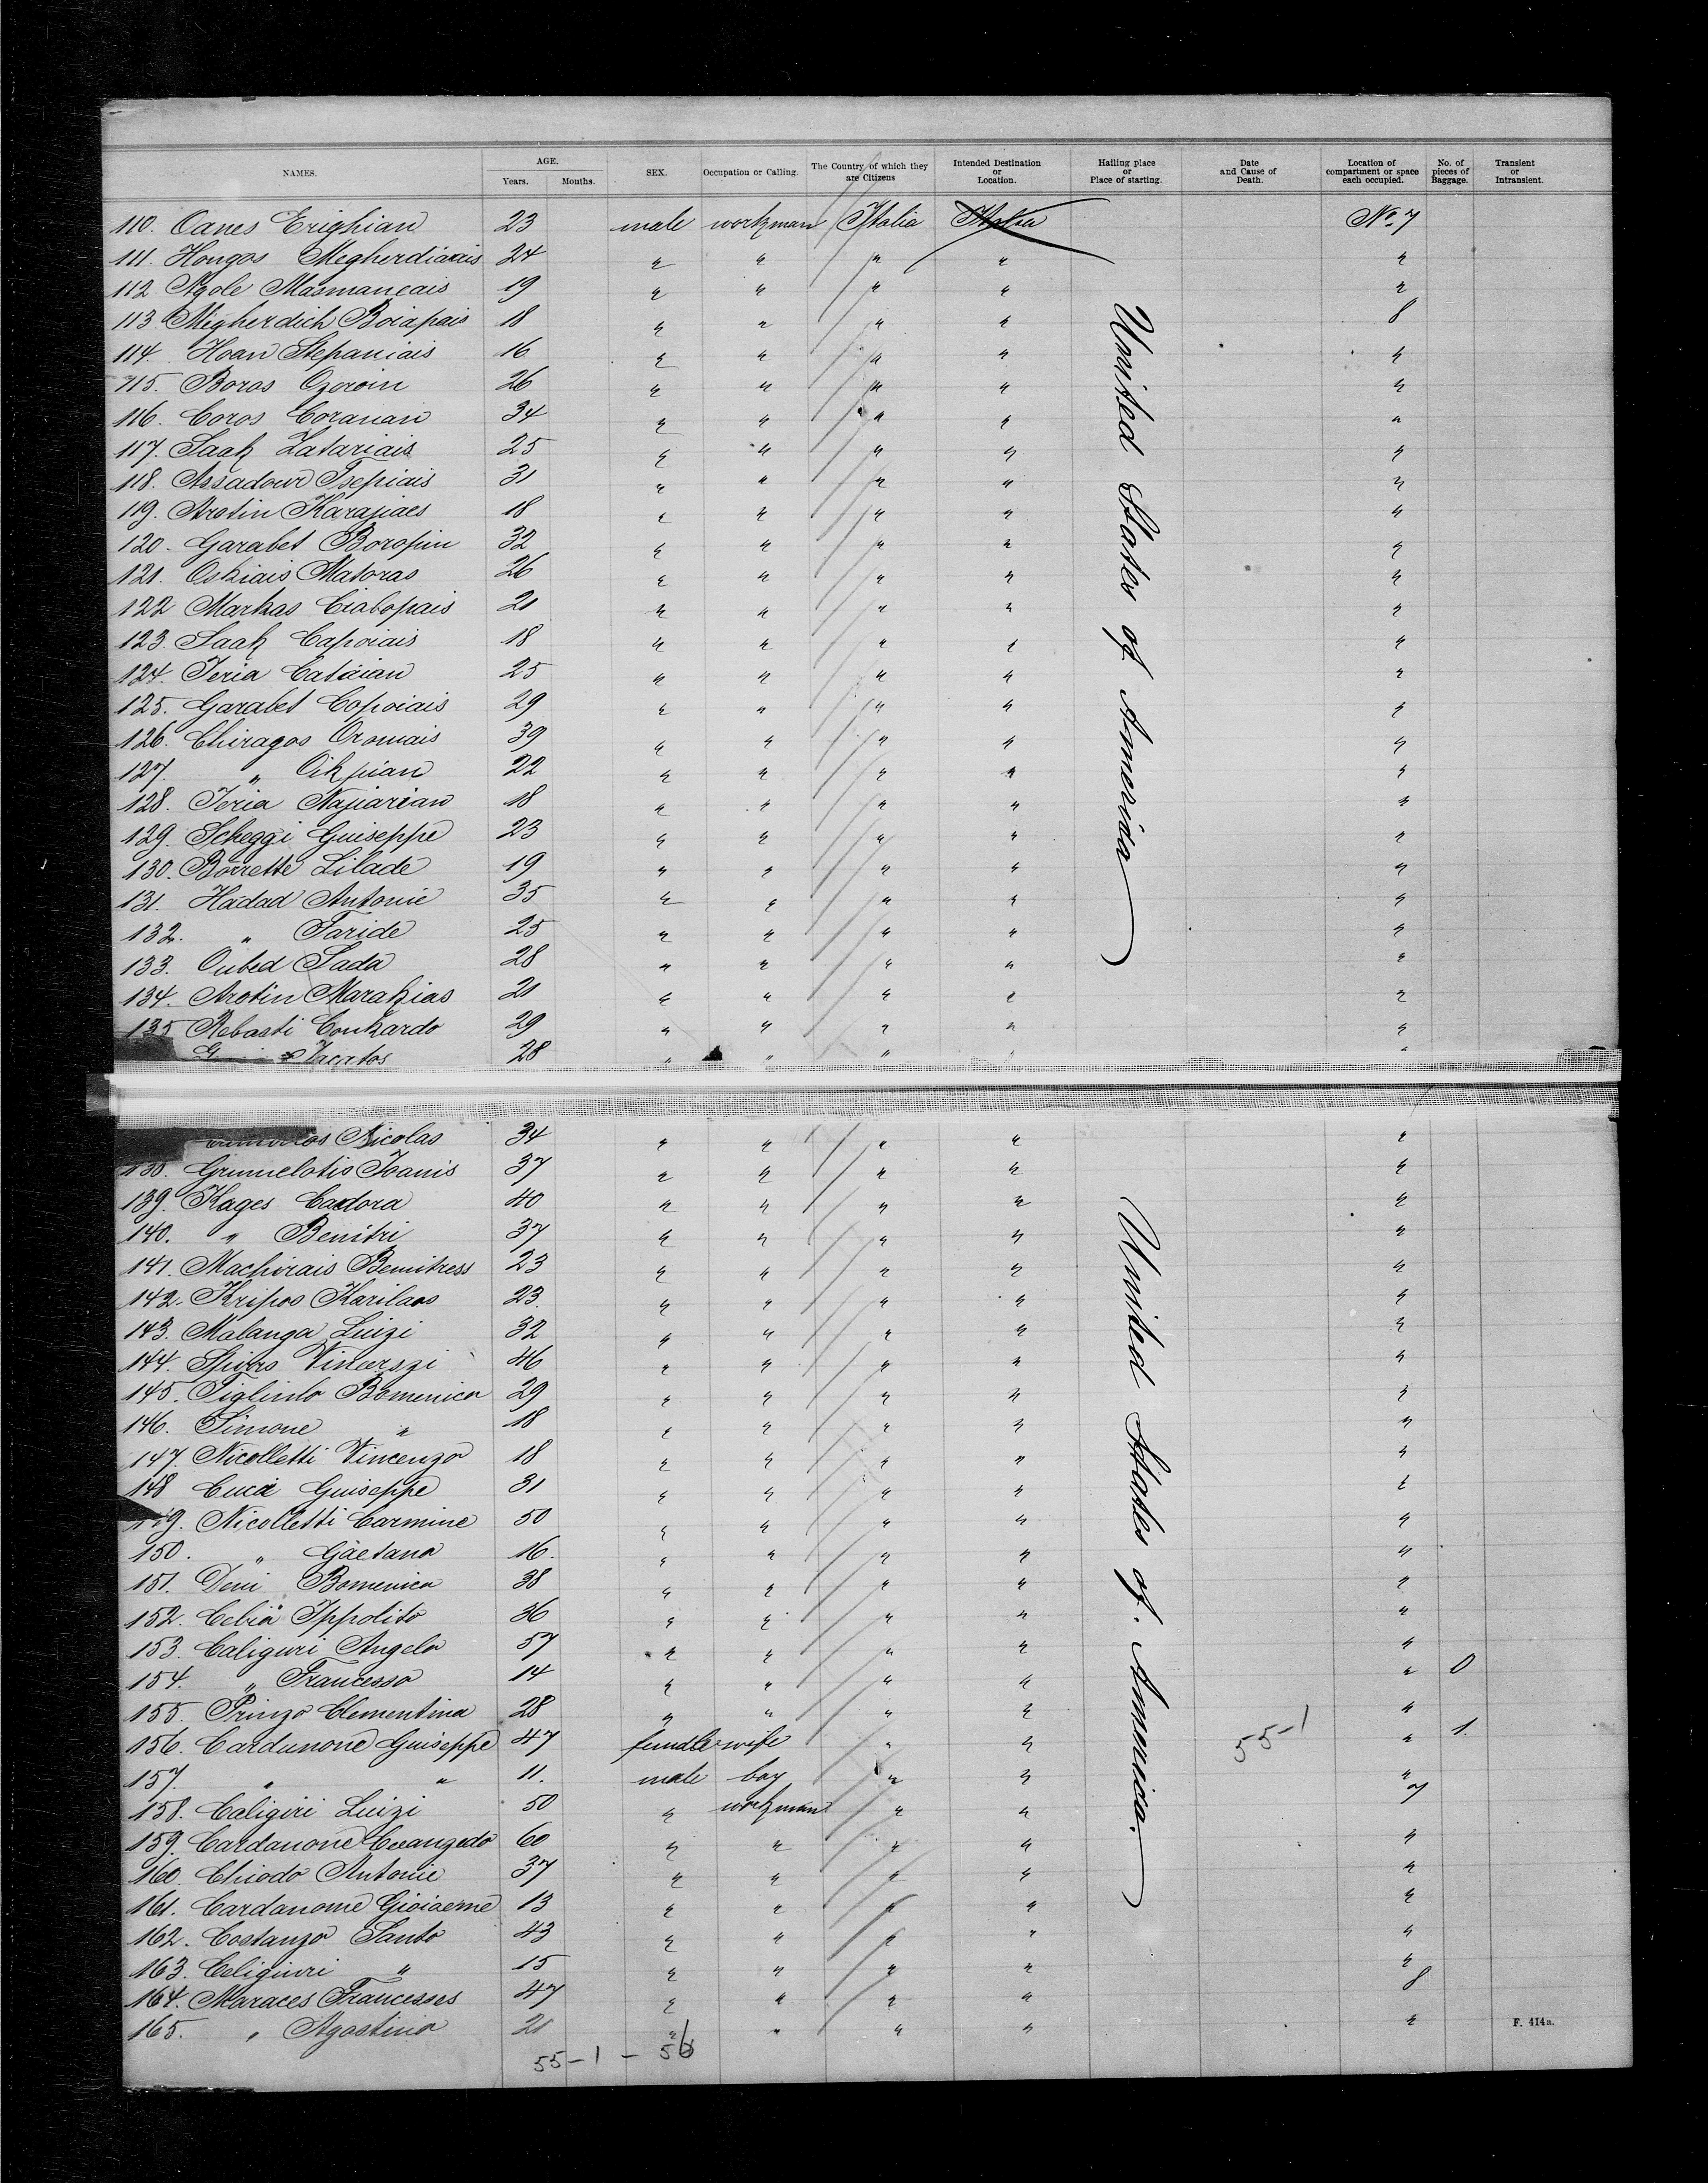 NAMES. AGE. Years. Months. SEX. Occupation or Calling. The Country of which they are Citizens Intended Destination or Location. Hailing place or Place of starting. Date and Cause of Death. Location of compartment or space each occupied. No. of pieces of Baggage. Transient or Intransient.
110. Oanes Erighian 23 male workman Italia Italia No. 7
111. Hongos Megherdiarais 24 " " " " "
112 Agole Masmancais 19 " " " " "
113 Migherdich Boiapais 18 " " " " 8
114. Hoan Stepaniais 16 " " " " "
115. Boros Ozeroin 26 " " " " "
116. Coros Coranan 34 " " " " "
117. Saak Zatariais 25 " " " " "
118. Assadour Tsepiais 31 " " " " "
119. Arotin Karajiaes 18 " " " " "
120. Garabet Boropin 32 " " " " "
121. Oskiais Matoras 26 " " " " "
122 Markas Ciabopais 21 " " " " "
123. Saak Capoiais 18 " " " " "
124. Jeria Catàian 25 " " " " "
125. Garabet Copoiais 29 " " " " "
126. Chiragos Oromais 39 " " " " "
127. " Cikpian 22 " " " " "
128. Jeria Najiarian 18 " " " " "
129. Scheggi Guiseppe 23 " " " " "
130. Borrette Lilade 19 " " " " "
131. Hadad Antonie 35 " " " " "
132. " Faride 25 " " " " "
133. Oubed Sada 28 " " " " "
134. Arotin Marakias 21 " " " " "
135 Rebasti Conkardo 29 " " " " "
28 " " " "
United States of America
Nicolas 34 " " " " "
138. Grumelotis Joanis 37 " " " " "
139. Kages Cadora 40 " " " " "
140. " Benitri 37 " " " " "
141. Machirais Bemitress 23 " " " " "
142. Kripos Karilaos 23. " " " " "
143. Malanga Luizi 32 " " " " "
144. Spiros Vincerszi 46 " " " " "
145. Figlinlo Bomenica 29 " " " " "
146. Simone " 18 " " " " "
147. Nicolletti Vincenzo 18 " " " " "
148 Cuca Guiseppe 31 " " " " "
149. Nicolletti Carmine 50 " " " " "
150. " Gàetana 16. " " " " "
151. Deni Bomenica 38 " " " " "
152. Cebia Ippolito 36 " " " " "
153. Caliguri Angelo 57 " " " " "
154. " Francesso 14 " " " " " 0
155. Prinzo Clementina 28 " " " " "
156. Cardunone Guiseppe 47 female wife " " 55-1 " 1.
157. " " 11. male boy " " "
158. Caligiri Luizi 50 " workman " " 7
159. Cardanone Ceeanzedo 60 " " " " "
160. Chiodo Antonie 37 " " " " "
161. Cardanome Gioiaeme 13 " " " " "
162. Costanzo Santo 43 " " " " "
163. Celigiuri " 15 " " " " "
164. Maraces Francesses 47 " " " " 8
165. " Agostino 21 " " " " "
United States of America.
55-1 - 56
F. 414a.